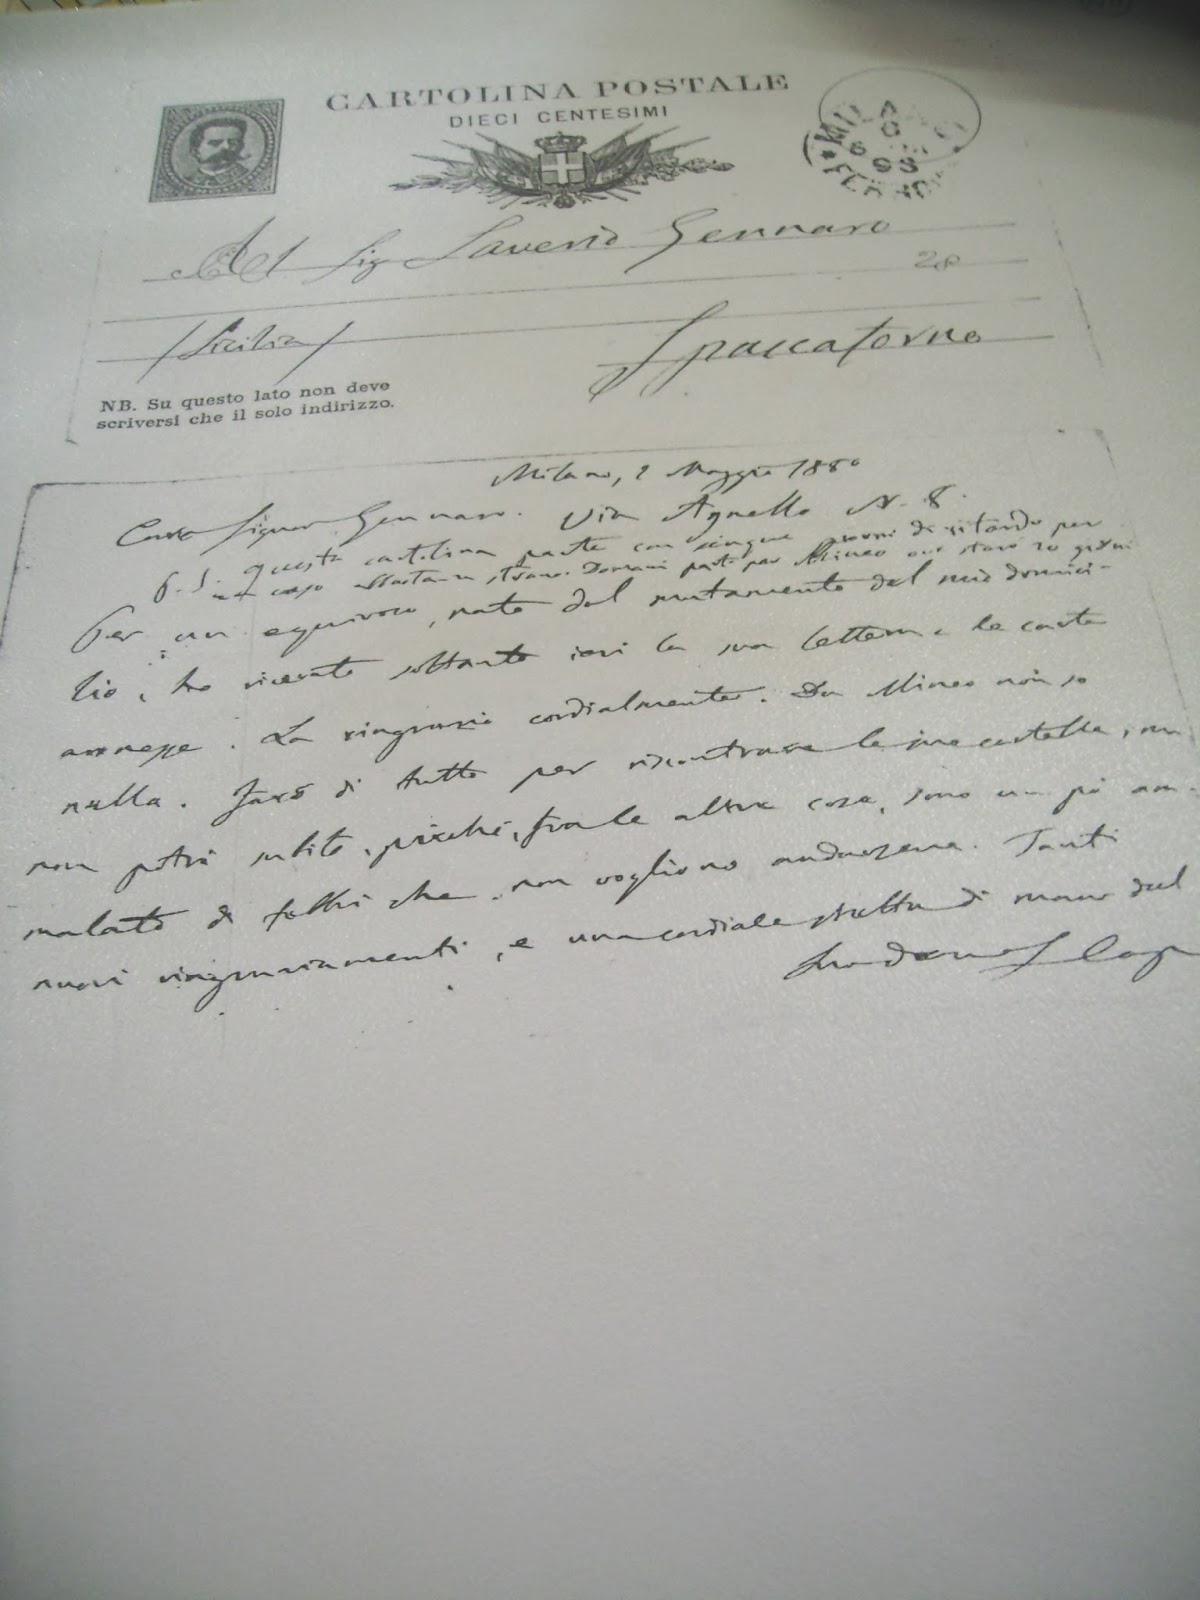 CARTOLINA POSTALE
DIECI CENTESIMI
MILANO
Al Sig Saverio Gennaro
(Sicilia)
Spaccaforno
NB. Su questo lato non deve
scriversi che il solo indirizzo.
Milano, 2 Maggio 1880
Caro Signor Gennaro. Via Agnello N. 8.
P. S. Questa cartolina parte con cinque giorni di ritardo per
un caso abbastanza strano. Domani parto per Mineo ove starò 20 giorni
Per un equivoco, nato dal mutamento del mio domici-
lio, ho ricevuto soltanto ieri la sua lettera e le carte
annesse. La ringrazio cordialmente. Da Mineo non so
nulla. Farò di tutto per riscontrare le mie cartelle, ma
non potrò subito, perchè, fra le altre cose, sono un pò am-
malato di febbri che non vogliono andarsene. Tanti
nuovi ringraziamenti, e una cordiale stretta di mano dal